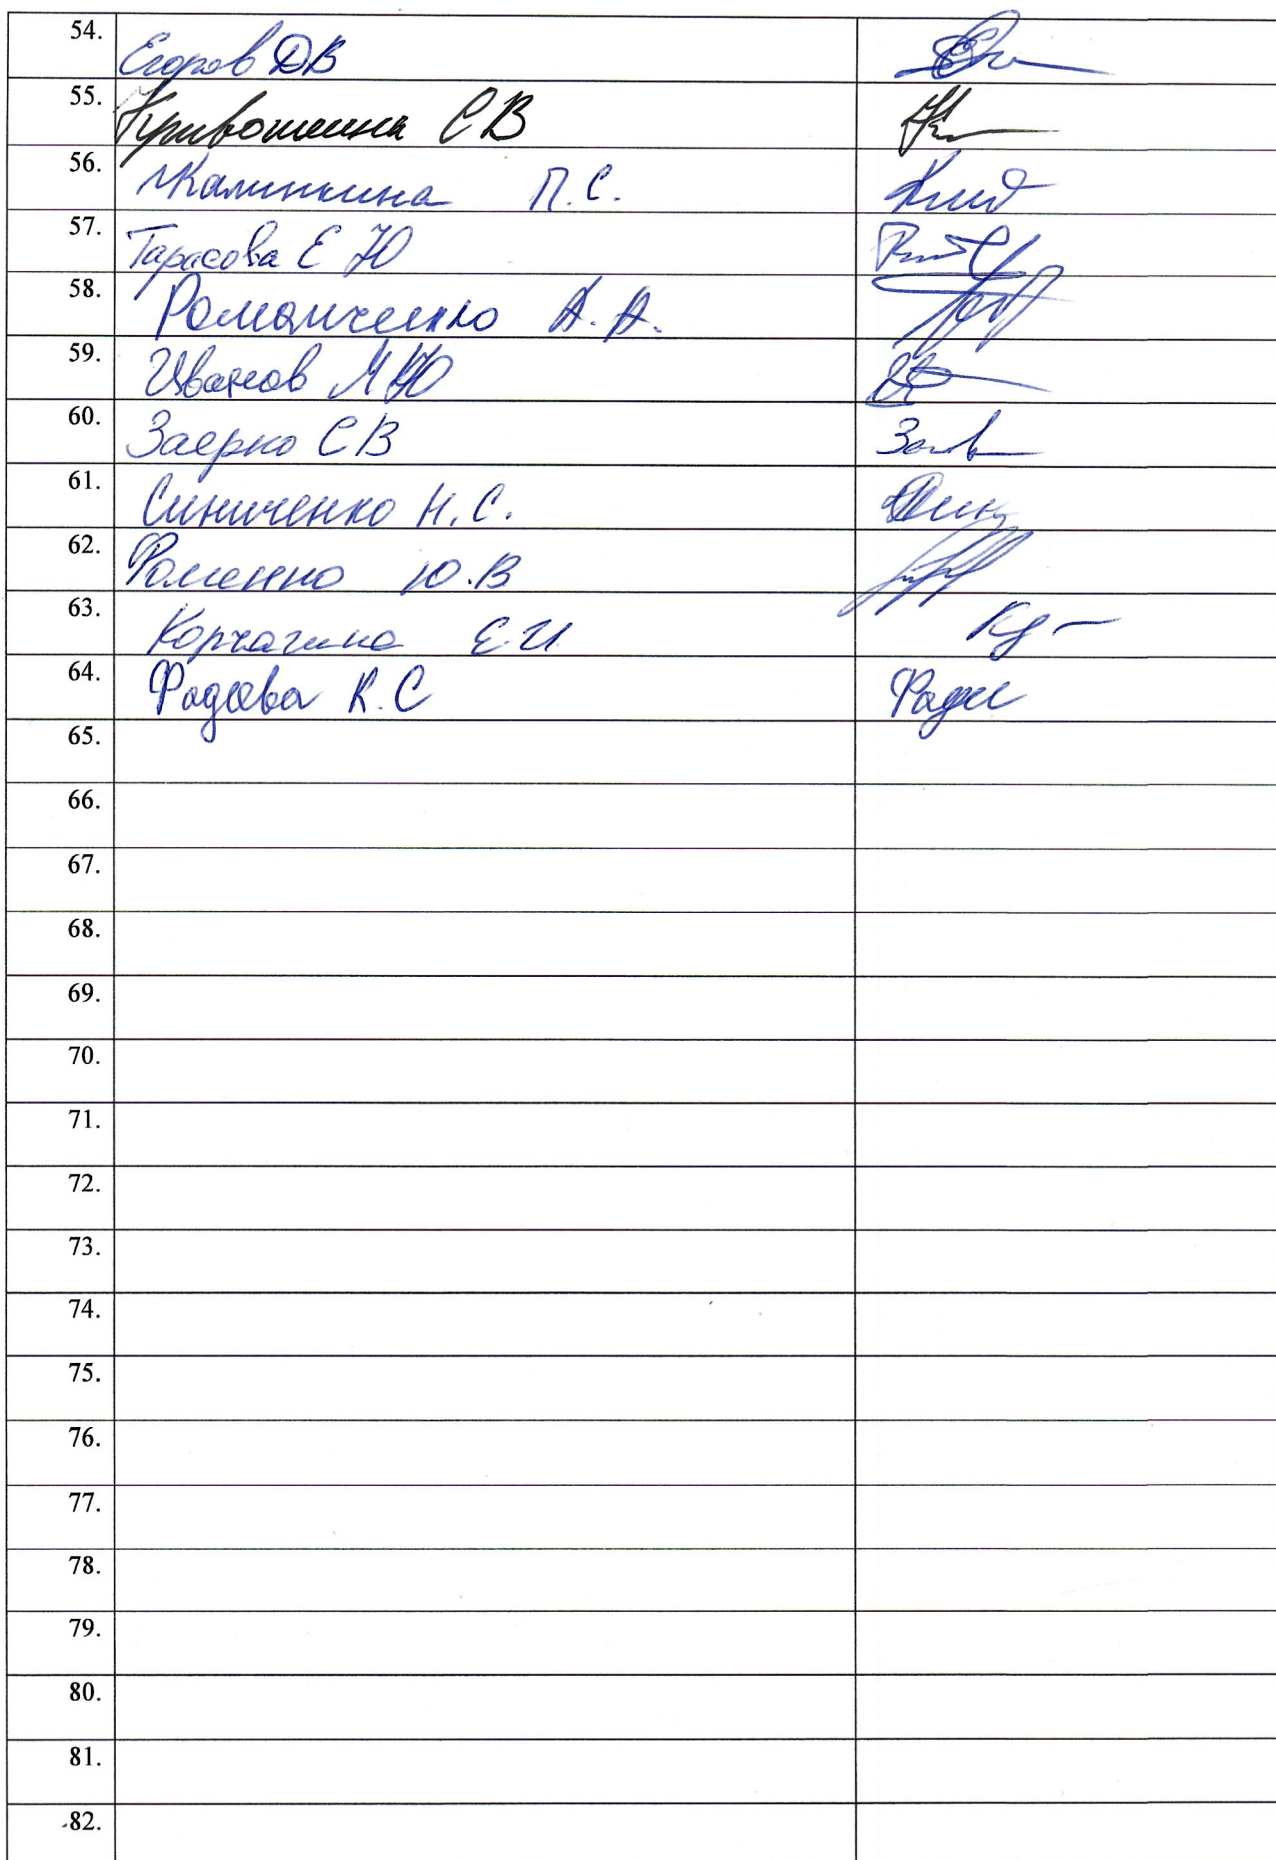 54. Егоров ДВ
55. Кривошеина СВ
56. Калинкина П.С.
57. Тарасова Е Ю
58. Романченко А.А.
59. Иванов М Ю
60. Заерко СВ
61. Синиченко Н.С.
62. Фоменко Ю.В
63. Корчагина Е.И
64. Фадеева К.С
65.
66.
67.
68.
69.
70.
71.
72.
73.
74.
75.
76.
77.
78.
79.
80.
81.
82.